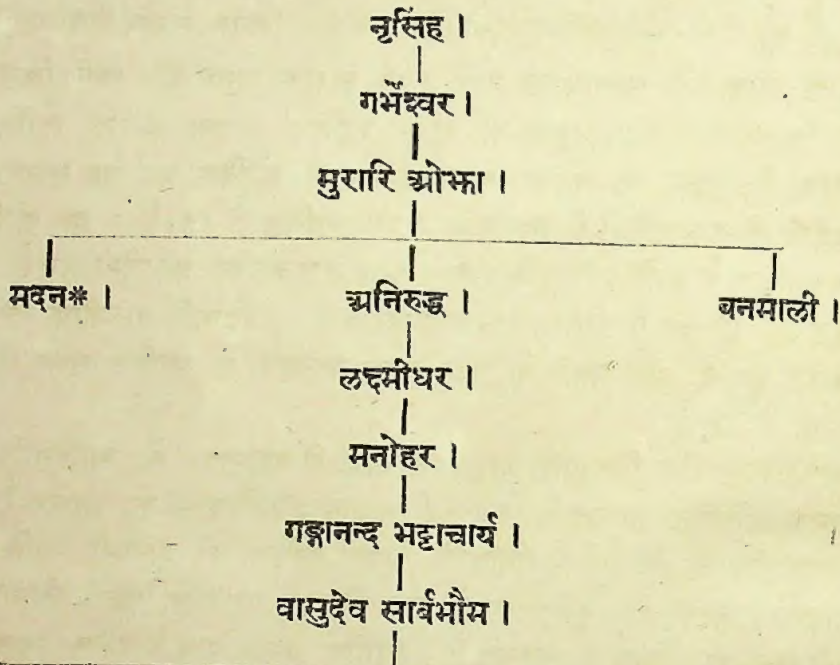 नृसिंह ।
गर्भेश्वर ।
मुरारि ओझा ।
मदन* । अनिरुद्ध । बनमाली ।
लक्ष्मीधर ।
मनोहर ।
गङ्गानन्द भट्टाचार्य ।
वासुदेव सार्बभौम ।